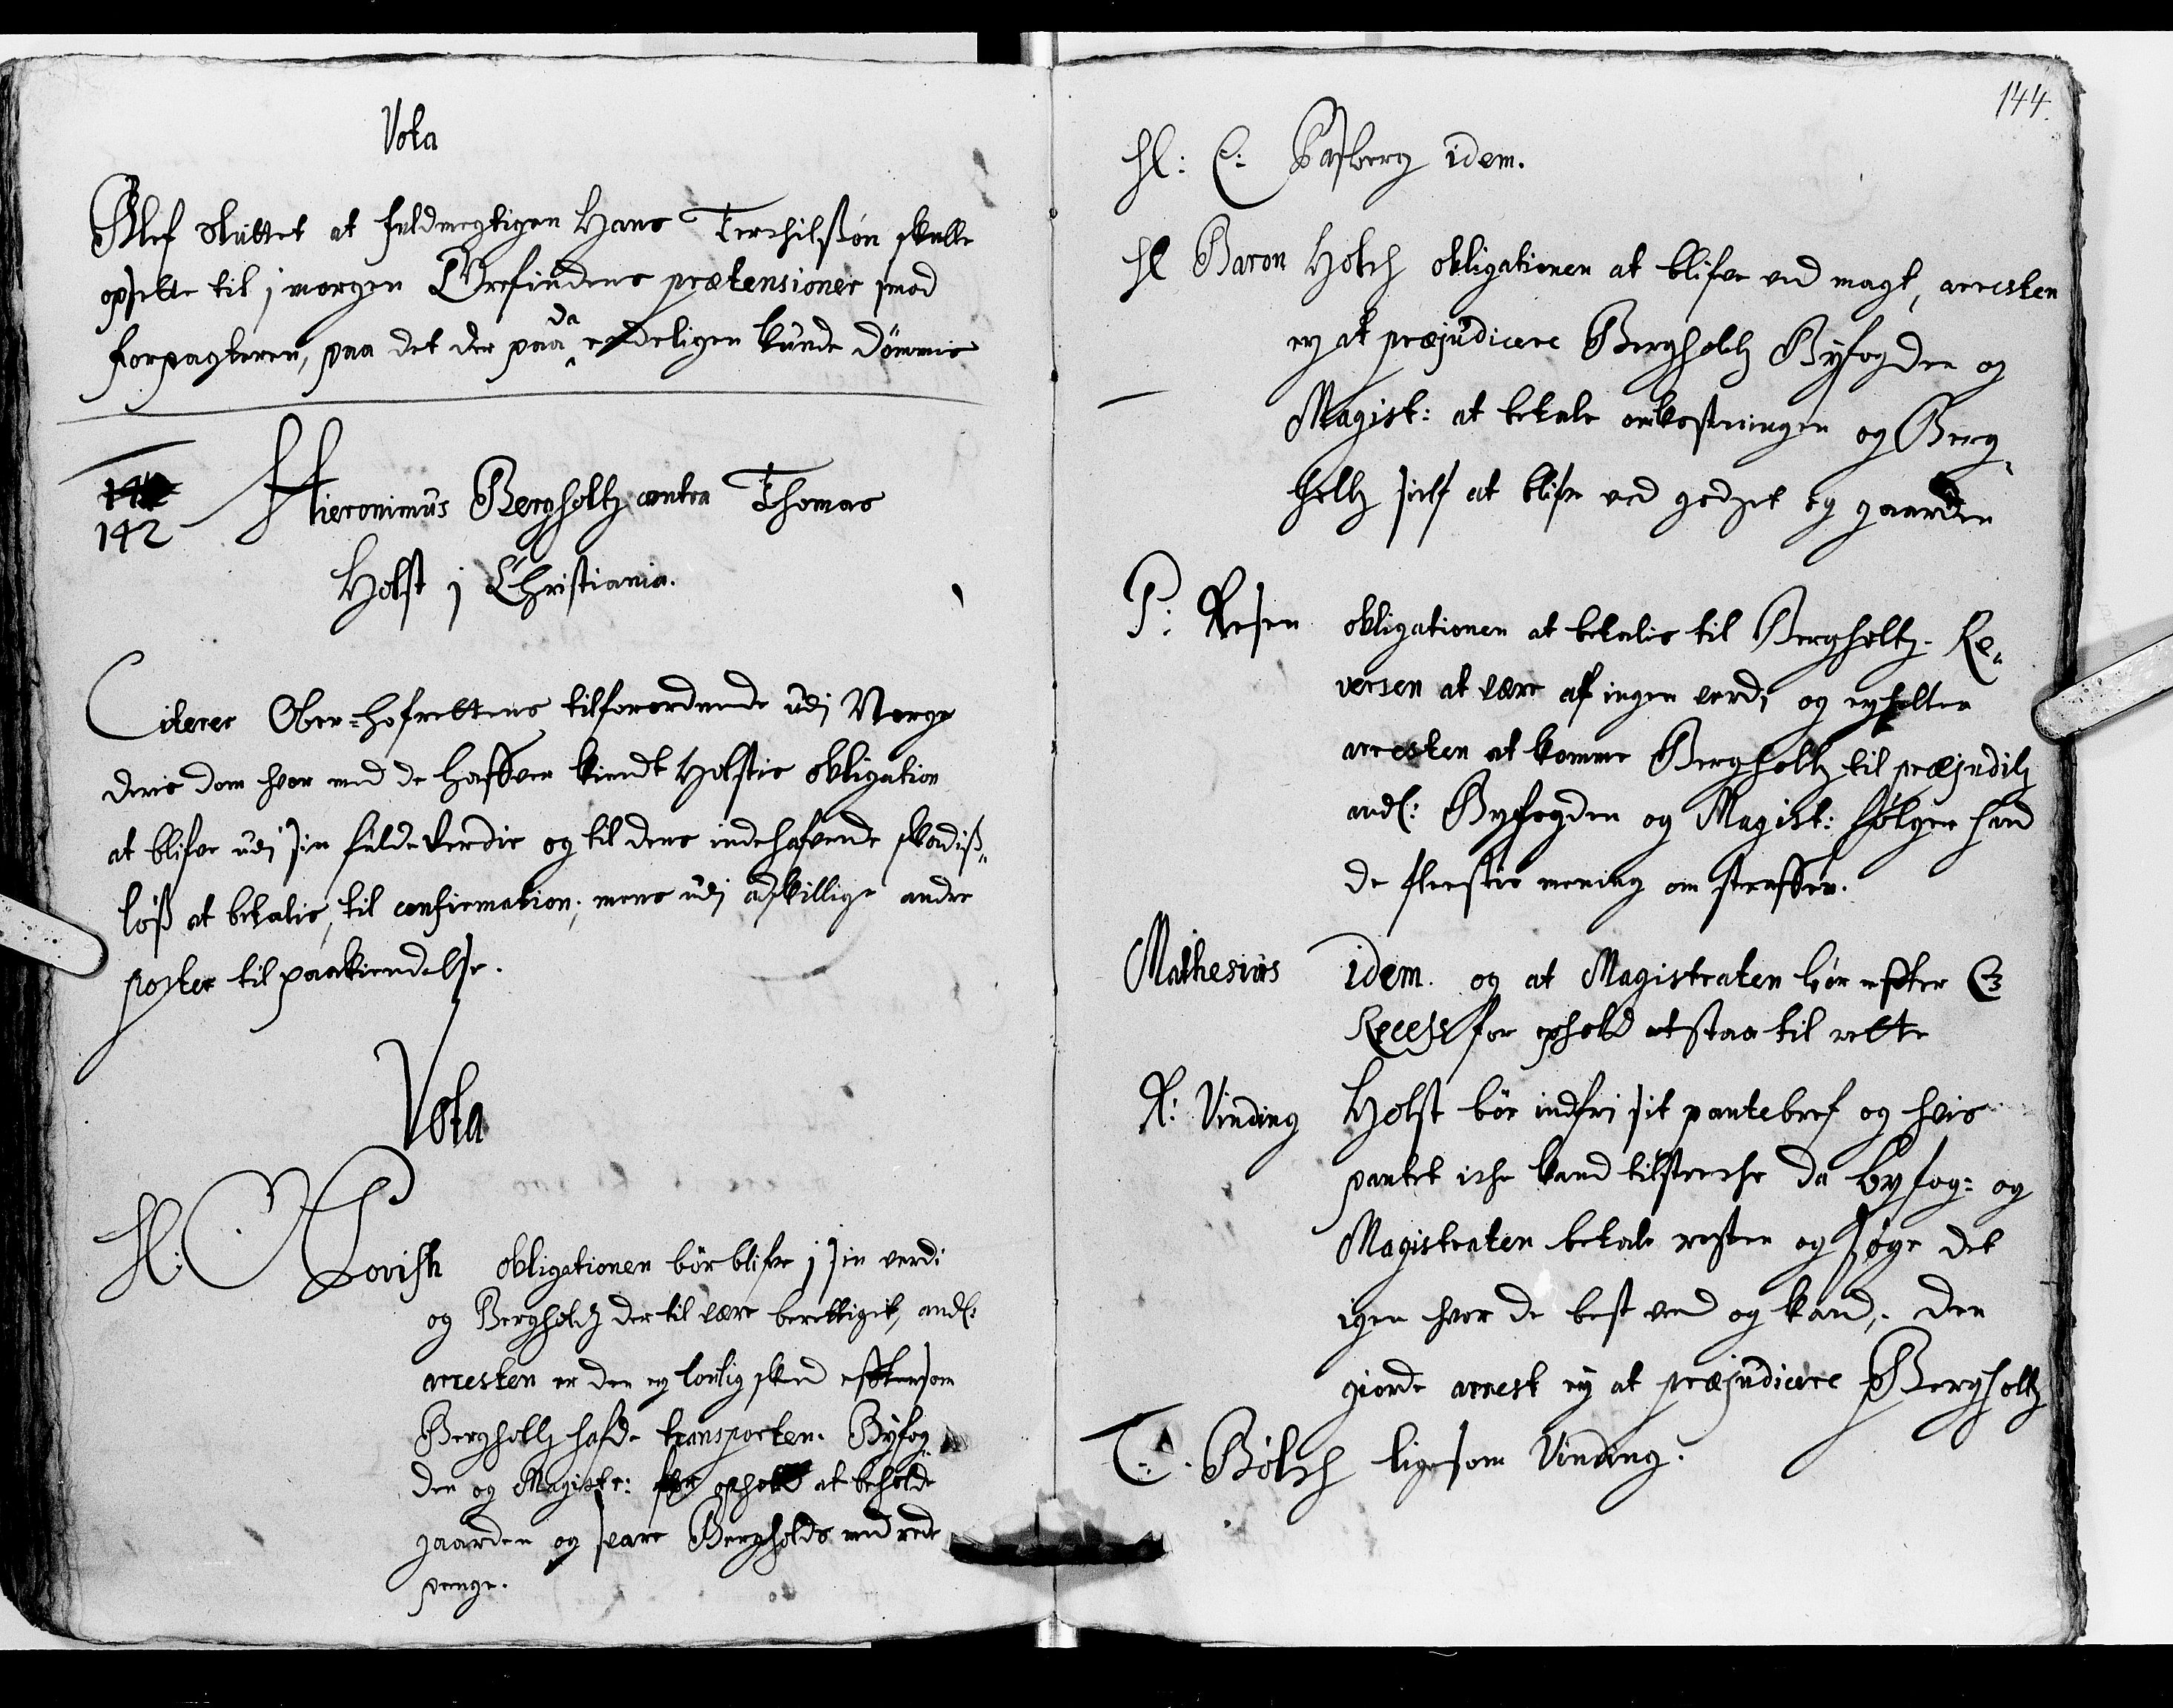 Vota
Blef sluttet at fuldmegtigen Hans Terchilßøn skulle
opsette til j morgen Grefindens prætensioner jmod
forpagteren, paa det der paa da endeligen kunde dømmis
142
Hieronimus Bergholtz contra Thomas
Holst j Christiania.
Citerer Ober-hofrettens tilforordnede udj Norge
deris dom hvor med de haffver kiendt Holstis obligation
at blifve udj sin fulde Verdie og til dens indehafvende skadiß„
løß at betalis, til confirmation; mens udj adskillige andre
poster til paakiendelse.
Vota
Hl: Povisk obligationen bør blifve j sin verdi
og Bergholtz der til være berettiget, andl:
arresten er den ey lovlig skeed efftersom
Bergholtz hafde transporten. Byfog„
den og Magistr: for ophold at beholde
gaarden og svare Bergholds med rede
penge.
144.
Hl: C: Pasberg idem.
Hl Baron Holch obligationen at blifve ved magt, arresten
ey at præjudicere Bergholtz Byfogden og
Magist: at betale omkostningen og Berg„
holtz sielf at blifve ved godzet og gaarden
P: Resen obligationen at betalis til Bergholtz. Re„
versen at være af ingen verdj og ey holten
arresten at komme Bergholtz til præjuditz
andl: Byfogden og Magist: følger hand
de fleestis mening om straffen.
Mathesius idem. og at Magistraten bør effter
Recess for ophold at staa til rette
R: Vinding Holst bør indfri sit pantebref og hvis
pantet iche kand tilstreche da byfog: og
Magistraten betale resten og søge det
igen hvor de best veed og kand, den
giorde arrest ey at præjudicere Bergholtz
T. Bølch ligesom Vinding.